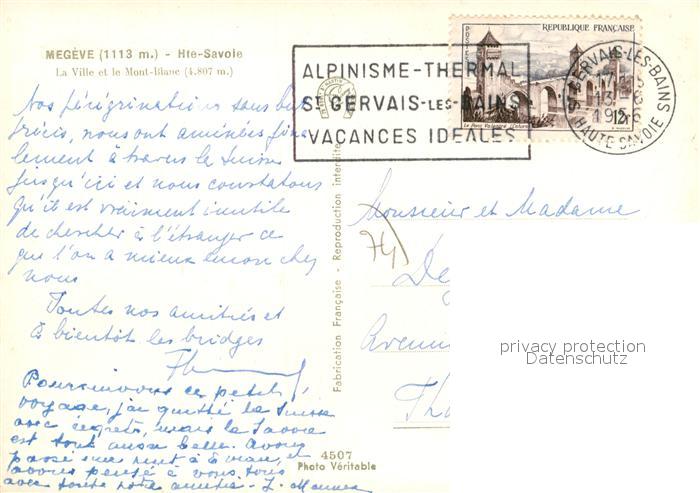 MEGÈVE (1113 m.) - Hte-Savoie
La Ville et le Mont-Blanc (4.807 m.)
Nos pérégrinations sans but
précis, nous ont amenées fina
lement à travers la Suisse
jusqu'ici et nous constatons
qu'il est vraiment inutile
de chercher à l'étranger ce
que l'on a mieux encore chez
nous
Toutes nos amitiés et
à bientôt les bridges
Poursuivons ce petit
voyage, j'ai quitté la Suisse
avec regrets, mais la Savoie
est tout aussi belle. Avons
passé une nuit à Evian, et
avons pensé à vous tous
avec toute notre amitié.
ALPINISME-THERMAL
ST GERVAIS-LES-BAINS
VACANCES IDEALES
REPUBLIQUE FRANÇAISE
POSTES
Le Pont Valentré (Cahors)
ST GERVAIS-LES-BAINS
HAUTE SAVOIE
Fabrication Française - Reproduction interdite
Monsieur et Madame
74
Avenue
privacy protection
Datenschutz
4507
Photo Véritable